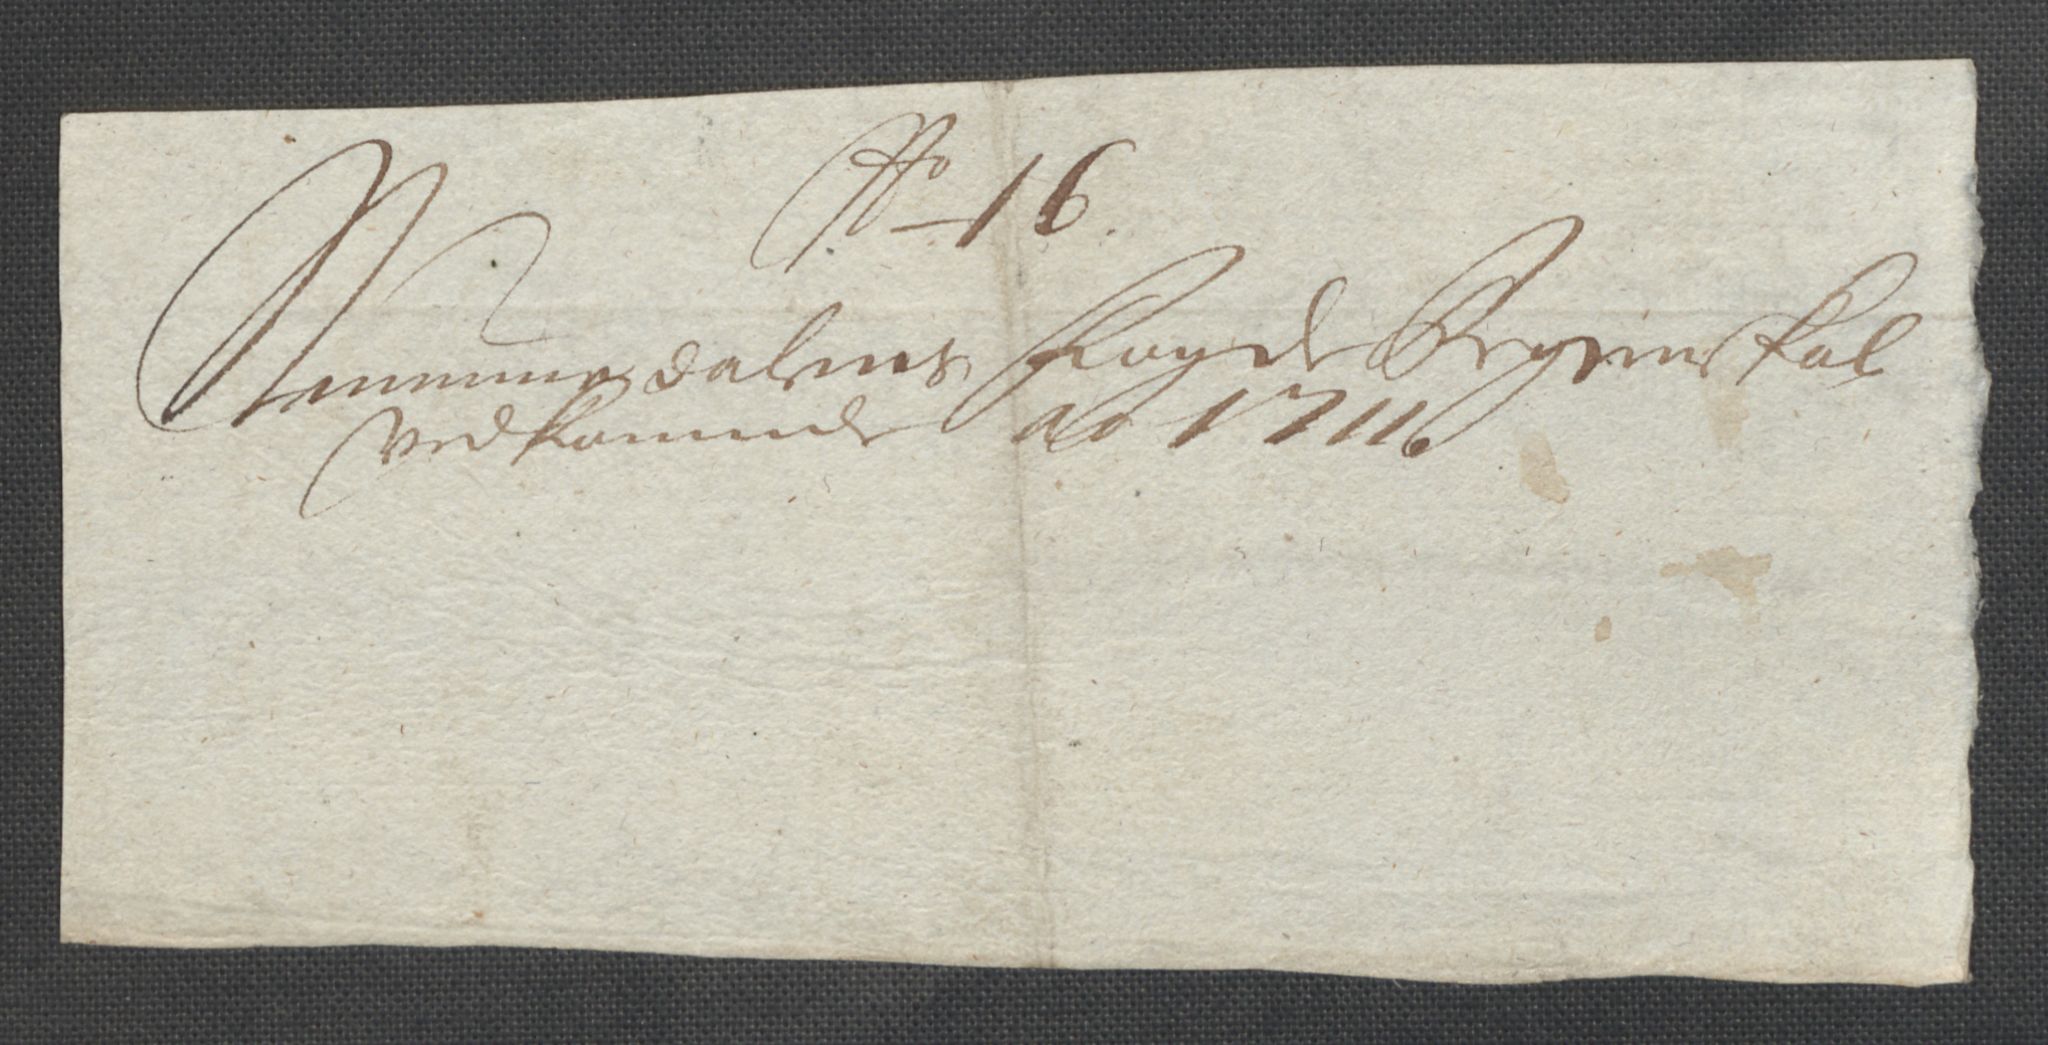 No 16.
Nummedalens Fogde Regenskab
vedkommende ao 1711.